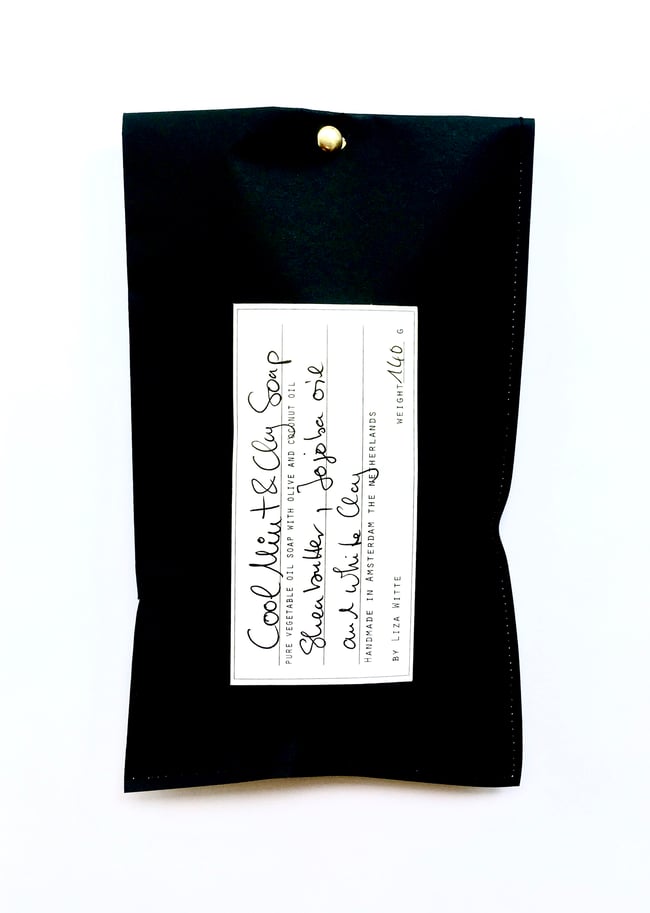 Cool Mint & Clay Soap
PURE VEGETABLE OIL SOAP WITH OLIVE AND COCONUT OIL
Sheabutter, Jojoba oil
and white Clay
HANDMADE IN AMSTERDAM THE NETHERLANDS
BY LIZA WITTE WEIGHT 140 G